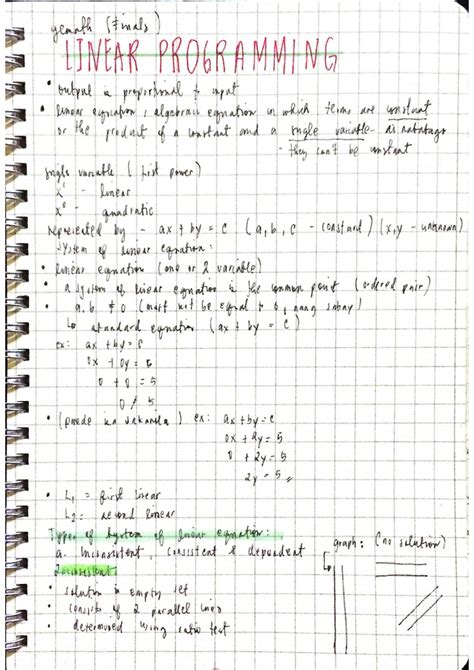 gemath (Finals)
LINEAR PROGRAMMING
• output is proportional to input
• linear equation, algebraic equation in which terms are constant
or the product of a constant and a single variable
- they can't be constant
single variable (first power)
x¹ - linear
- quadratic
represented by - ax + by = c (a, b, c - constant) (x, y - unknown)
System of linear equation:
• linear equation (one or 2 variable)
• a system of linear equation is the common point (ordered pair)
• a, b ≠ 0 (must not be equal to 0, nang sabay)
↳ standard equation (ax + by = c)
ex: ax + by = c
0x + 0y = 5
0 + 0 = 5
0 ≠ 5
• (pwede isa sakanila) ex: ax + by = c
0x + 2y = 5
0 + 2y = 5
2y = 5
• L₁ = first linear
L₂ = second linear
Types of system of linear equation:
a. Inconsistent, consistent & dependent
graph: (no solution)
Inconsistent:
• solution is empty set
• consists of 2 parallel lines
• determined using ratio test